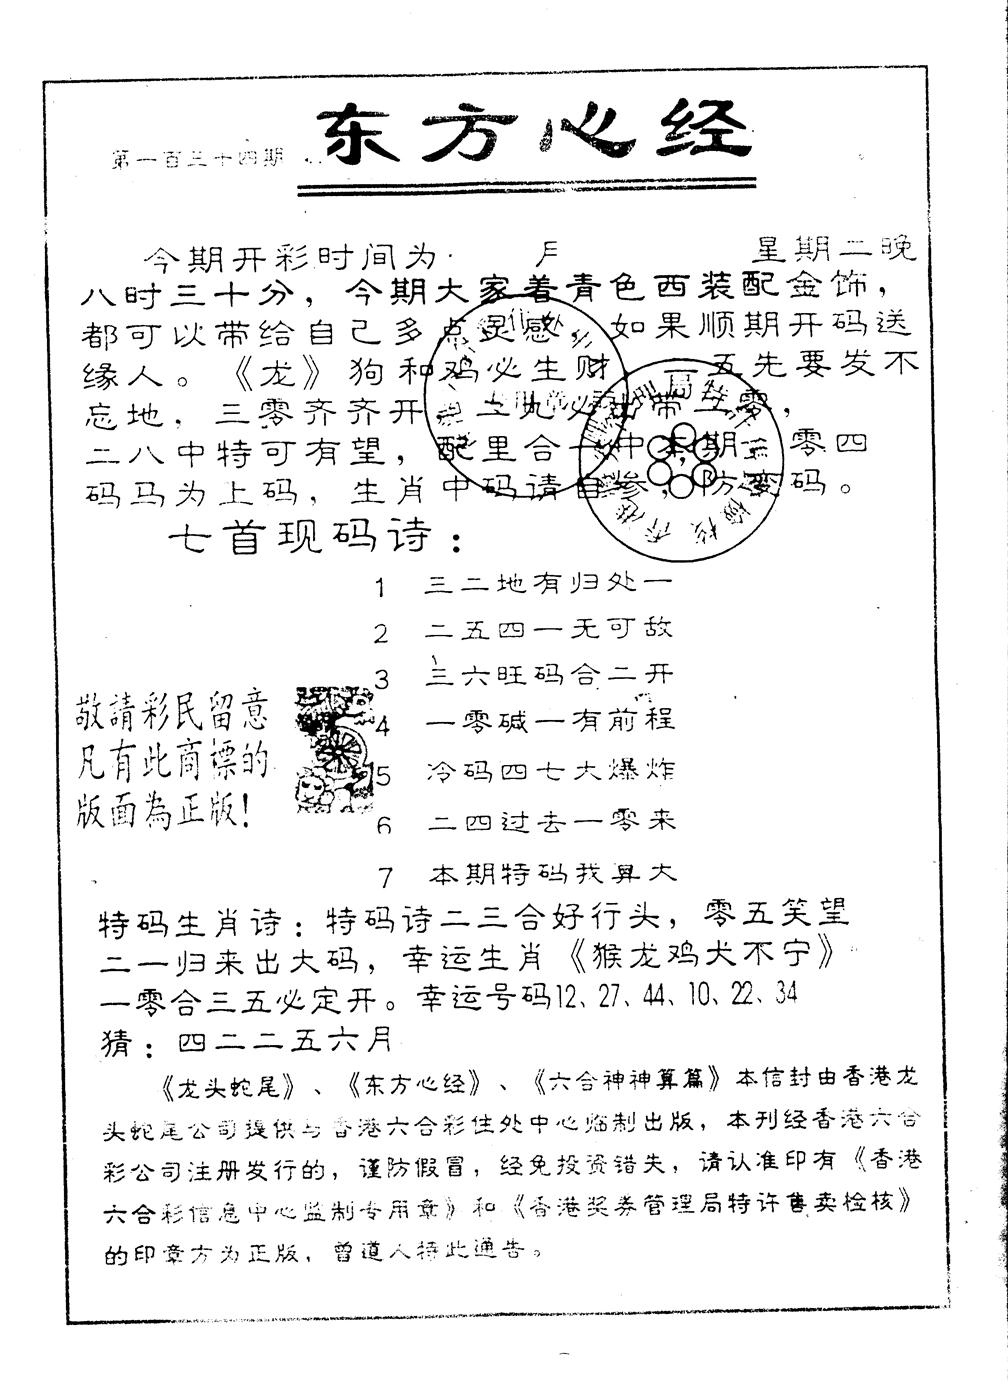 东方心经
第一百三十四期
今期开彩时间为 月 星期二晚
八时三十分，今期大家着青色西装配金饰，
都可以带给自己多点灵感 如果顺期开码送
缘人。《龙》狗和鸡必生财 一五先要发不
忘地，三零齐齐开 二九必出带二零，
二八中特可有望，配里合一中本期，零四
码马为上码，生肖中码请自参，防变码。
七首现码诗：
1 三二地有归处一
2 二五四一无可敌
3 三六旺码合二开
4 一零碱一有前程
5 冷码四七大爆炸
6 二四过去一零来
7 本期特码找算大
敬請彩民留意
凡有此商標的
版面為正版！
特码生肖诗：特码诗二三合好行头，零五笑望
二一归来出大码，幸运生肖《猴龙鸡犬不宁》
一零合三五必定开。幸运号码12、27、44、10、22、34
猜：四二二五六月
《龙头蛇尾》、《东方心经》、《六合神神算篇》本信封由香港龙
头蛇尾公司提供与香港六合彩住处中心临制出版，本刊经香港六合
彩公司注册发行的，谨防假冒，经免投资错失，请认准印有《香港
六合彩信息中心监制专用章》和《香港奖券管理局特许售卖检核》
的印章方为正版，曾道人特此通告。